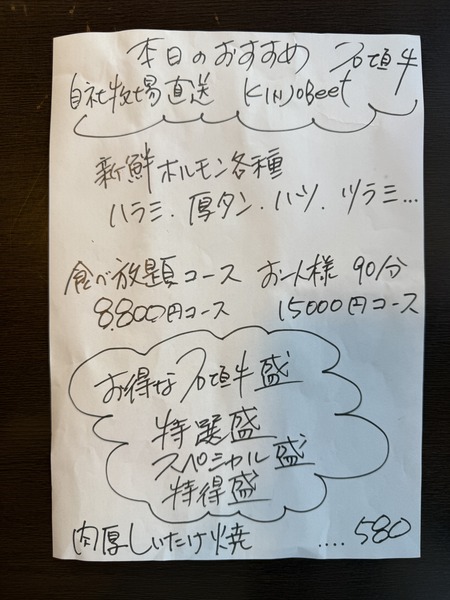 本日のおすすめ 石垣牛
自社牧場直送 KINJOBeef
新鮮ホルモン各種
ハラミ．厚タン．ハツ．ツラミ…
食べ放題コース お一人様 90分
8.800円コース 15000円コース
お得な石垣牛盛
特選盛
スペシャル盛
特得盛
肉厚しいたけ焼 ....580